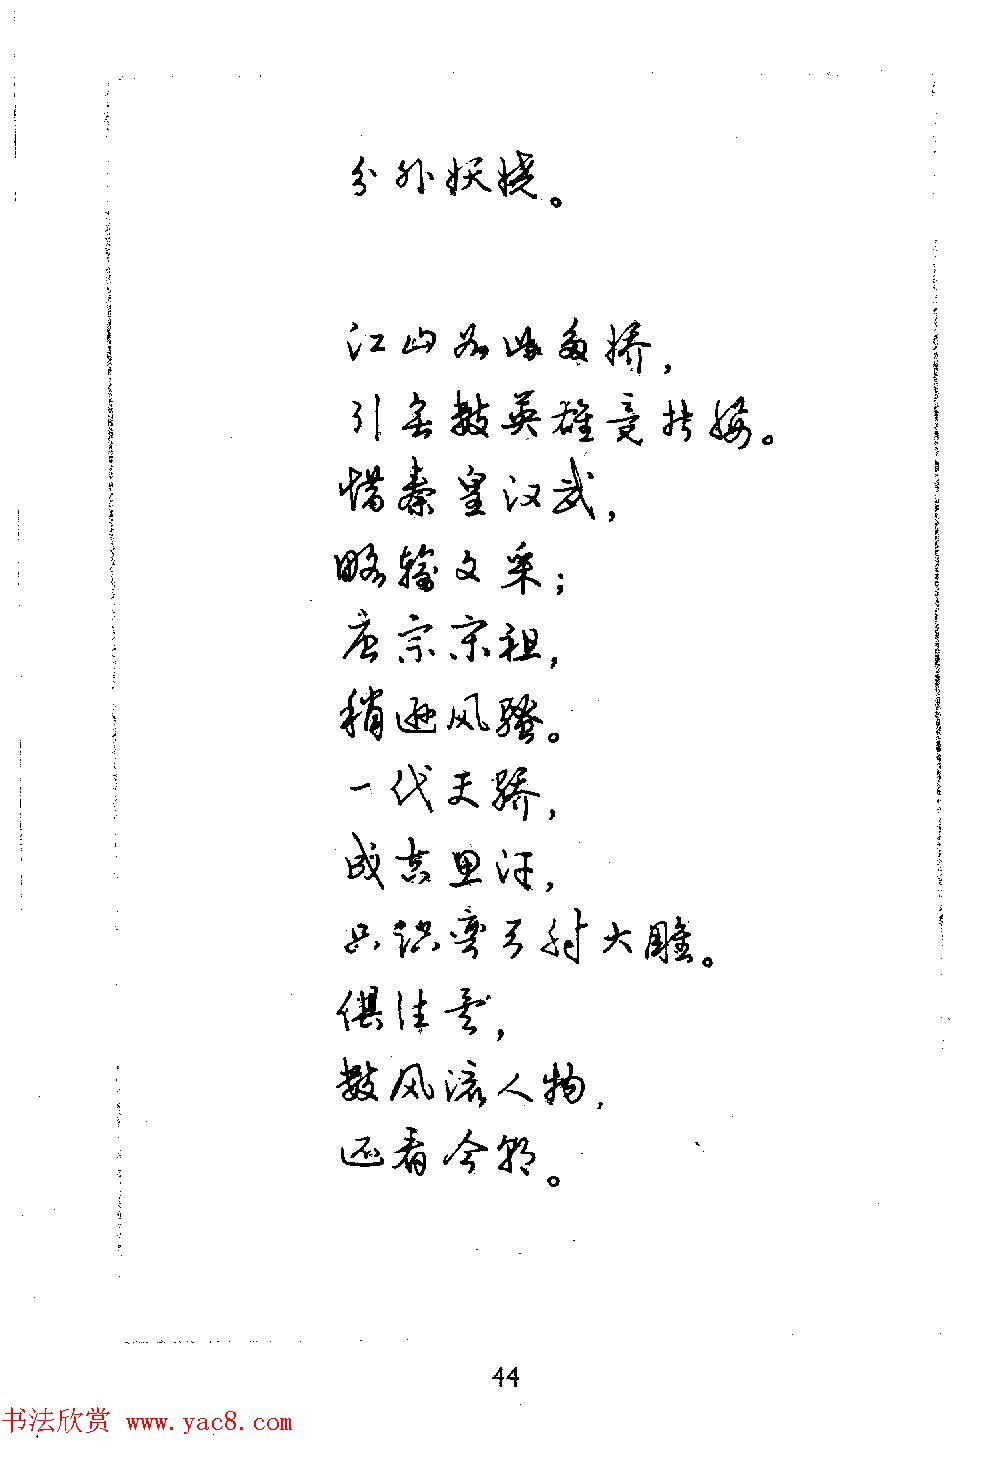 分外妖娆。
江山如此多娇,
引无数英雄竞折腰。
惜秦皇汉武,
略输文采;
唐宗宋祖,
稍逊风骚。
一代天骄,
成吉思汗,
只识弯弓射大雕。
俱往矣,
数风流人物,
还看今朝。
44
书法欣赏 www.yac8.com